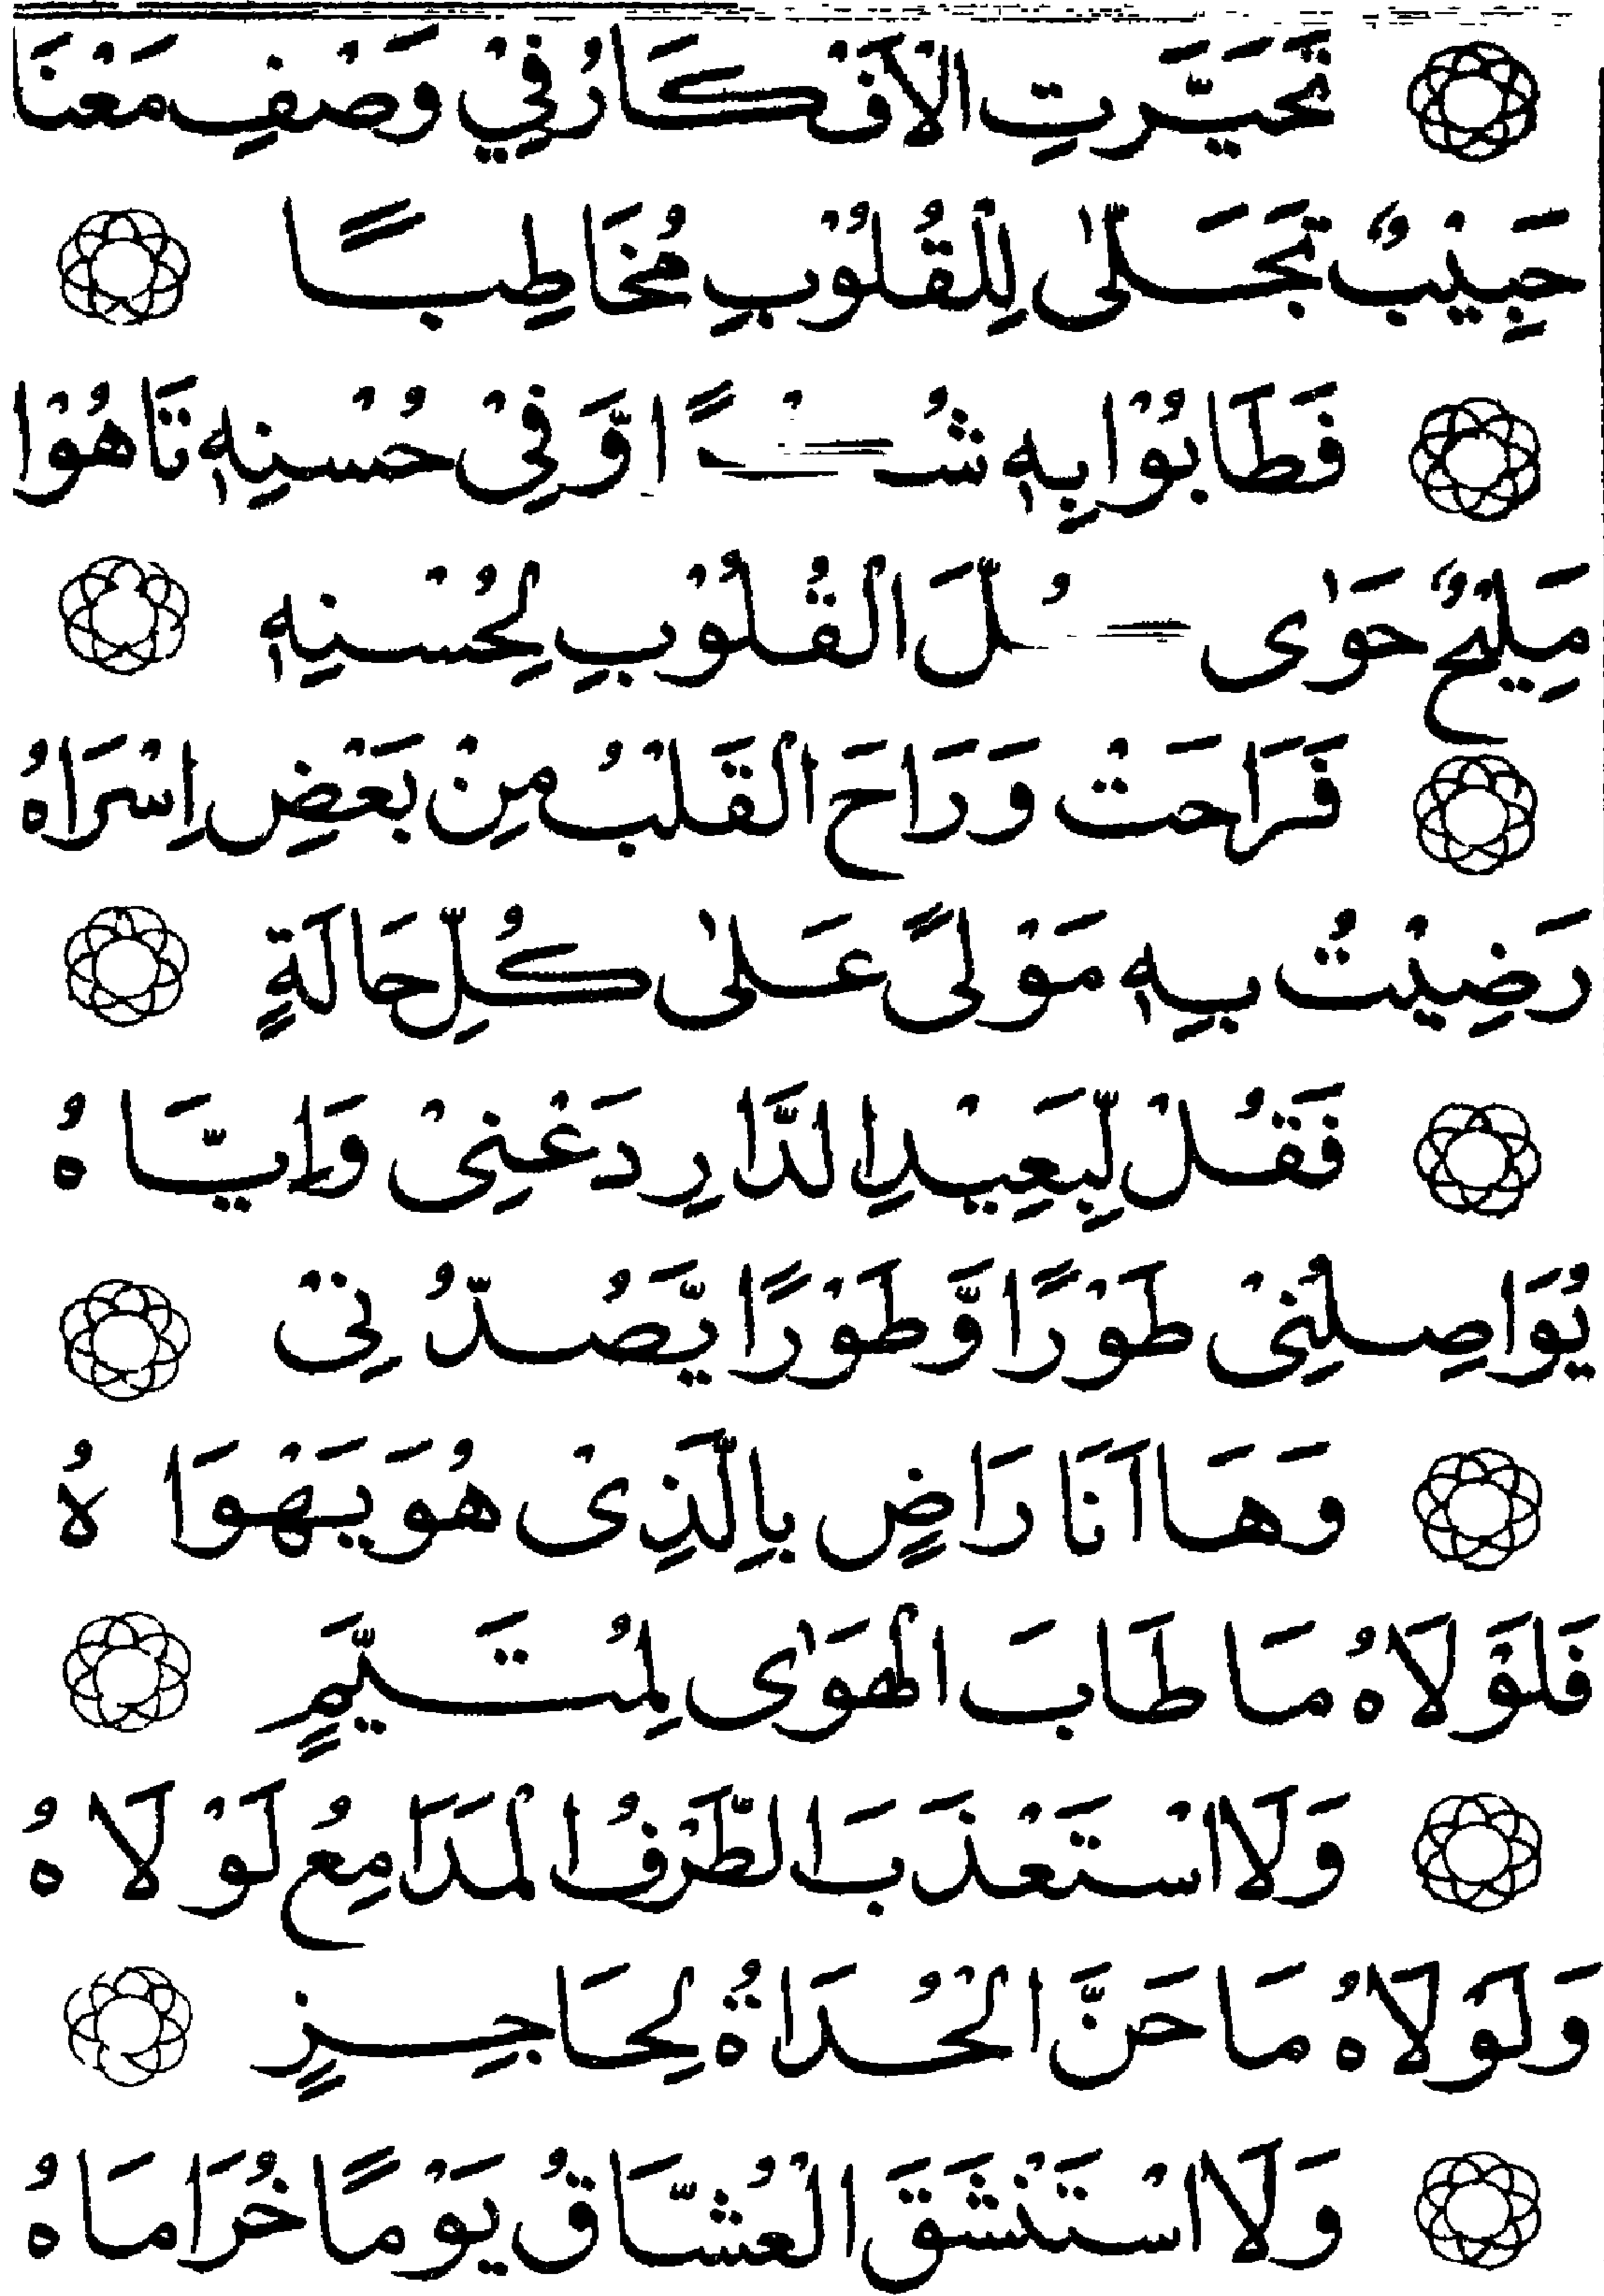 تَحَيَّرَتِ الْاَفْكَارُ فِيْ وَصْفِ مَعْنَا
حَبِيْبٌ تَجَلّٰى لِلْقُلُوْبِ مُخَاطِبًا
فَطَابُوْا بِهٖ وَّ فِيْ حُسْنِهٖ تَاهُوْا
مَلِيْحٌ حَوٰى كُلَّ الْقُلُوْبِ لِحُسْنِهٖ
فَرَاحَتْ وَرَاحَ الْقَلْبُ مِنْ بَعْضِ اِسْرَاهُ
رَضِيْتُ بِهٖ مَوْلًى عَلٰى كُلِّ حَالَةٍ
فَقُلْ لِّبَعِيْدِ الدَّارِ دَعْنِىْ وَاِيَّاهُ
يُوَاصِلُنِىْ طَوْرًا وَّطَوْرًا يَّصُدُّنِىْ
وَهَا اَنَا رَاضٍ بِالَّذِىْ هُوَ يَهْوَاهُ
فَلَوْلَاهُ مَا طَابَ الْهَوٰى لِمُتَيَّمٍ
وَلَا اسْتَعْذَبَ الطَّرْفُ الْمَدَامِعُ لَوْلَاهُ
وَلَوْلَاهُ مَا حَنَّ الْحُدَاةُ لِحَاجِزٍ
وَلَا اسْتَنْشَقَ الْعُشَّاقُ يَوْمًا خُزَامَاهُ